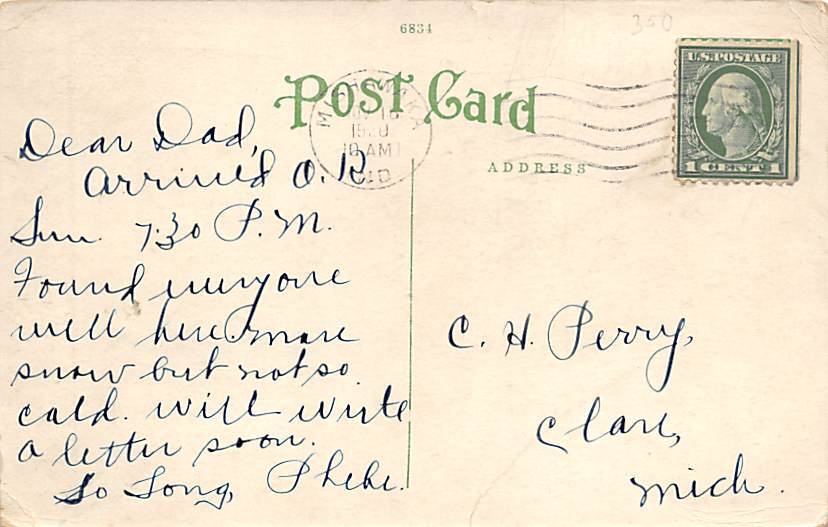 6834
350
Post Card
U.S. POSTAGE
1 CENT 1
MISHAWAKA
16
1920
10 AM
IND
ADDRESS
Dear Dad,
Arrived O.K
Sun. 7:30 P.M.
Found everyone
well here. more
snow but not so
cold. will write
a letter soon.
So Long, Phebe.
C. H. Perry,
Clare,
Mich.